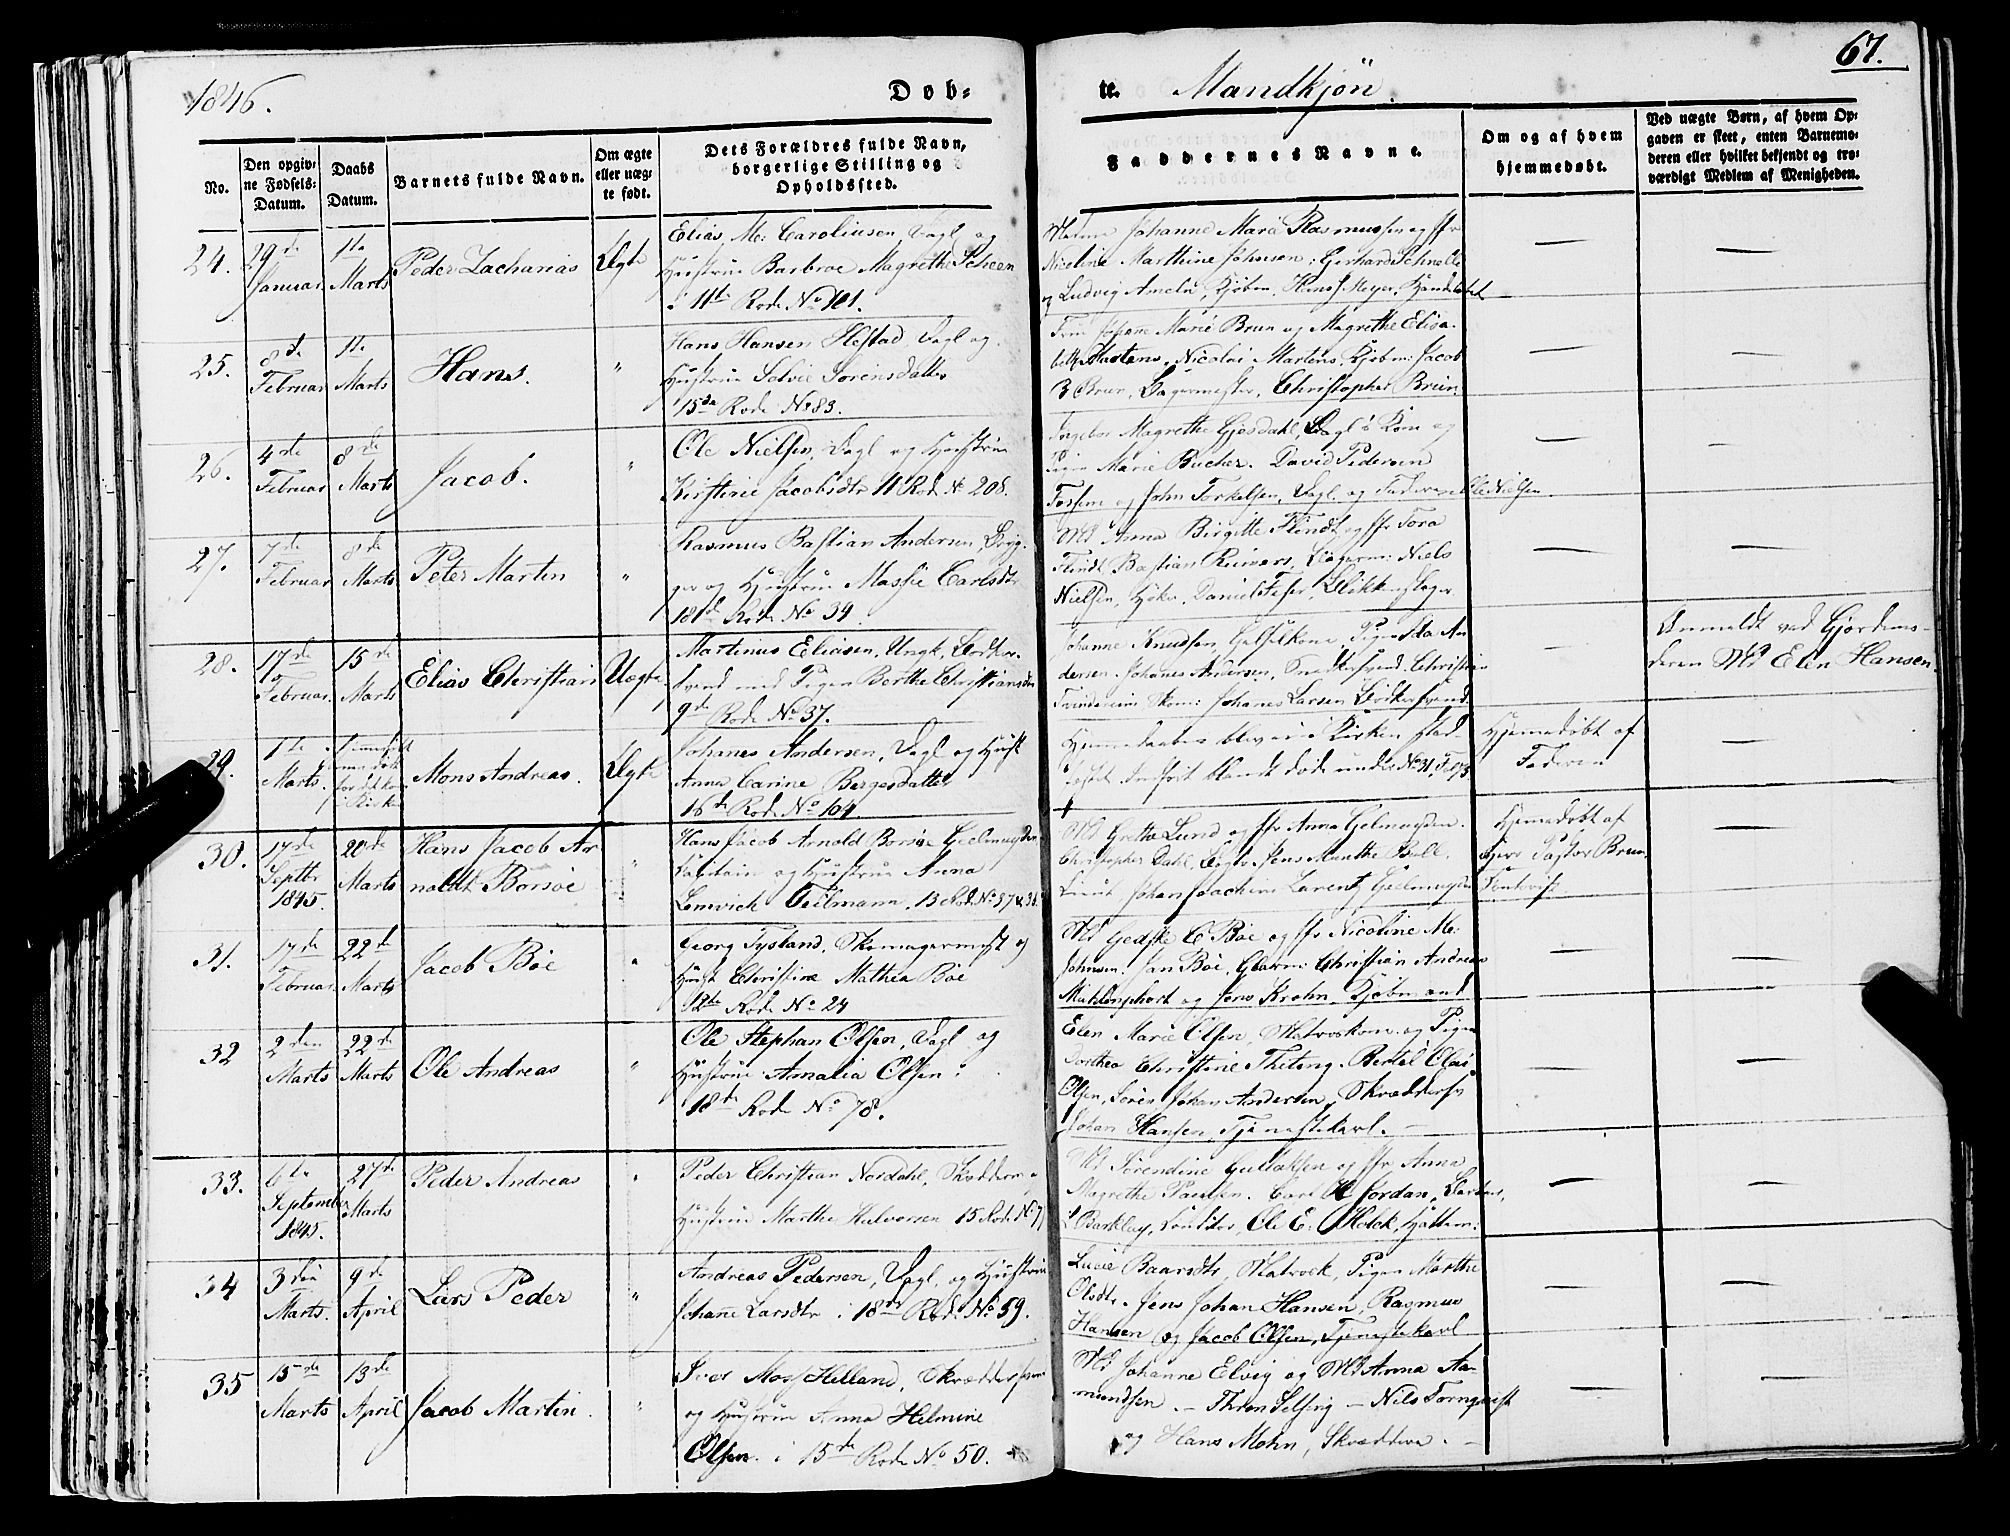 1846.
Døb-
te. Mandkjön.
67.
No.
Den opgiv-
ne Fødsels-
Datum.
Daabs
Datum.
Barnets fulde Navn.
Om ægte
eller uæg-
te født.
Dets Forældres fulde Navn,
borgerlige Stilling og
Opholdssted.
Faddernes Navne.
Om og af hvem
hjemmedøbt.
Ved uægte Børn, af hvem Op-
gaven er skeet, enten Barnemo-
deren eller hvilket bekjendt og tro-
værdigt Medlem af Menigheden.
24.
29de
Januar
1te
Marts
Peder Zacharias
Ægte
Elias M: Caroliusen, Dagl og
Hustrue Barbroe Magrethe Scheen
i 11te Rode No 101.
Johanne Marie Rasmussen og Jfr
Nicoline Marthine Johnsen; Gerhard Schnelle
og Ludvig Ameln, Kjöbm. Hans Meyer,
25.
8de
Februar
1te
Marts
Hans.
"
Hans Hansen Hestad Dagl og
Hustrue Solvie Sörensdatter
15de Rode No 83.
Johane Marie Brun og Magrethe Elisa-
beth Martens, Nicolai Martens, Kjöbm: Jacob
B Brun, Bagermester, Christopher Brun.
26.
4de
Februar
8de
Marts
Jacob.
"
Ole Nielsen, Dagl og Hustrue
Kirstine Jacobsdtr 11 Rode No 208.
Ingebor Magrethe Gjesdahl, Dagl's Kone og
Pigen Marie Bucher. David Pedersen
og John Torkelsen, Dagl. og Faderen Ole Nielsen.
27.
7de
Februar
8de
Marts
Peter Martin
"
Rasmus Bastian Andersen,
og Hustrue Massie Carlsdtr
18de Rode No 34
Md Anna Birgitte Flindt og Jfr Tora
Flindt Bastian Reimers, Niels
Nielsen, Daniel Feser, Blikkenslager
28.
17de
Februar
15de
Marts
Elias Christian
Uægte
Martinus Eliasen, Ungk, Bödker-
svend med Pigen Berthe Christiansdtr
9de Rode No 37.
Johanne Knudsen, Pigen Ida An-
dersen, Johanes Andersen, Snedkersvend. Christian
Skom: Johanes Larsen Bödkersvend
Anmeldt ved Gjordemo-
deren Md Elen Hansen.
29.
1te
Marts.
Mons Andreas.
Ægte
Johanes Andersen, Dagl og Hust
Anna Carine Bergesdatter
16de Rode No 104.
Hjemedaaben blev ei i Kirken stad-
fæstet. Indfört blandt döde under No 31,
Hjemedöbt af
Faderen
30.
17de
Septbr
1845.
20de
Marts
Hans Jacob Ar-
noldt Borsöe
"
Hans Jacob Arnold Borsöe Geelmuyden
Kapitain og Hustrue Anna
Lemvich Teilmann, 13 Rode No 37 & 38.
Md Grethe Lund og Jfr Anna Gelmuyden.
Christopher Dahl, Jens Munthe Bull,
Lieut Johan Joachim Larentz Geelmuyden
Hjemedöbt af
Herr Pastor Brun,
31.
17de
Februar
22de
Marts
Jacob Böe
"
Georg Tysland, Skomagermest og
Hust Christine Mathea Böe
12te Rode No 24
Md Gedske C Böe og Jfr Nicoline M:
Johnsen. Jan Böe, Glarm: Christian Andreas
og Jens Krohn, Kjöbmand
32
2den
Marts
22de
Marts
Ole Andreas
"
Ole Stephan Olsen, Dagl og
Hustrue Amalia Olsen.
18de Rode No 78.
Elen Marie Olsen, Matroskone og Pigen
Dorthea Christine Theting. Bertel Olai
Olsen, Sören Johan Andersen, Skræddersv
Johan Hansen, Tjenestekarl.
33.
6te
September
1845.
27de
Marts
Peder Andreas
"
Peder Christian Nordahl, og
Hustrue Marthe Halvorsen 15 Rode No 7
Md Sörendine Gullaksen og Jfr Anna
Magrethe Paulsen. Carl H Jordan,
Barkley, Conditor, Ole E. Holck, Hattem:
34
3die
Marts.
9de
April
Lars Peder
"
Andreas Pedersen, Dagl, og Hustrue
Johane Larsdtr i 18de Rode No 59.
Lucie Baarsdtr, Matrosk, Pigen Marthe
Olsdtr. Jens Johan Hansen, Rasmus
Hansen og Jacob Olsen, Tjenestekarl
35
15de
Marts
13de
April
Jacob Martin.
"
Iver Moss Helland, Skræddersvend
og Hustrue Anna Helmine
Olsen. i 15de Rode No 50.
Md Johanne Elvig og Md Anna Aa-
mundsen. – Thron Selseng – Nils Tornqvist
og Hans Mohn, Skræddere. –